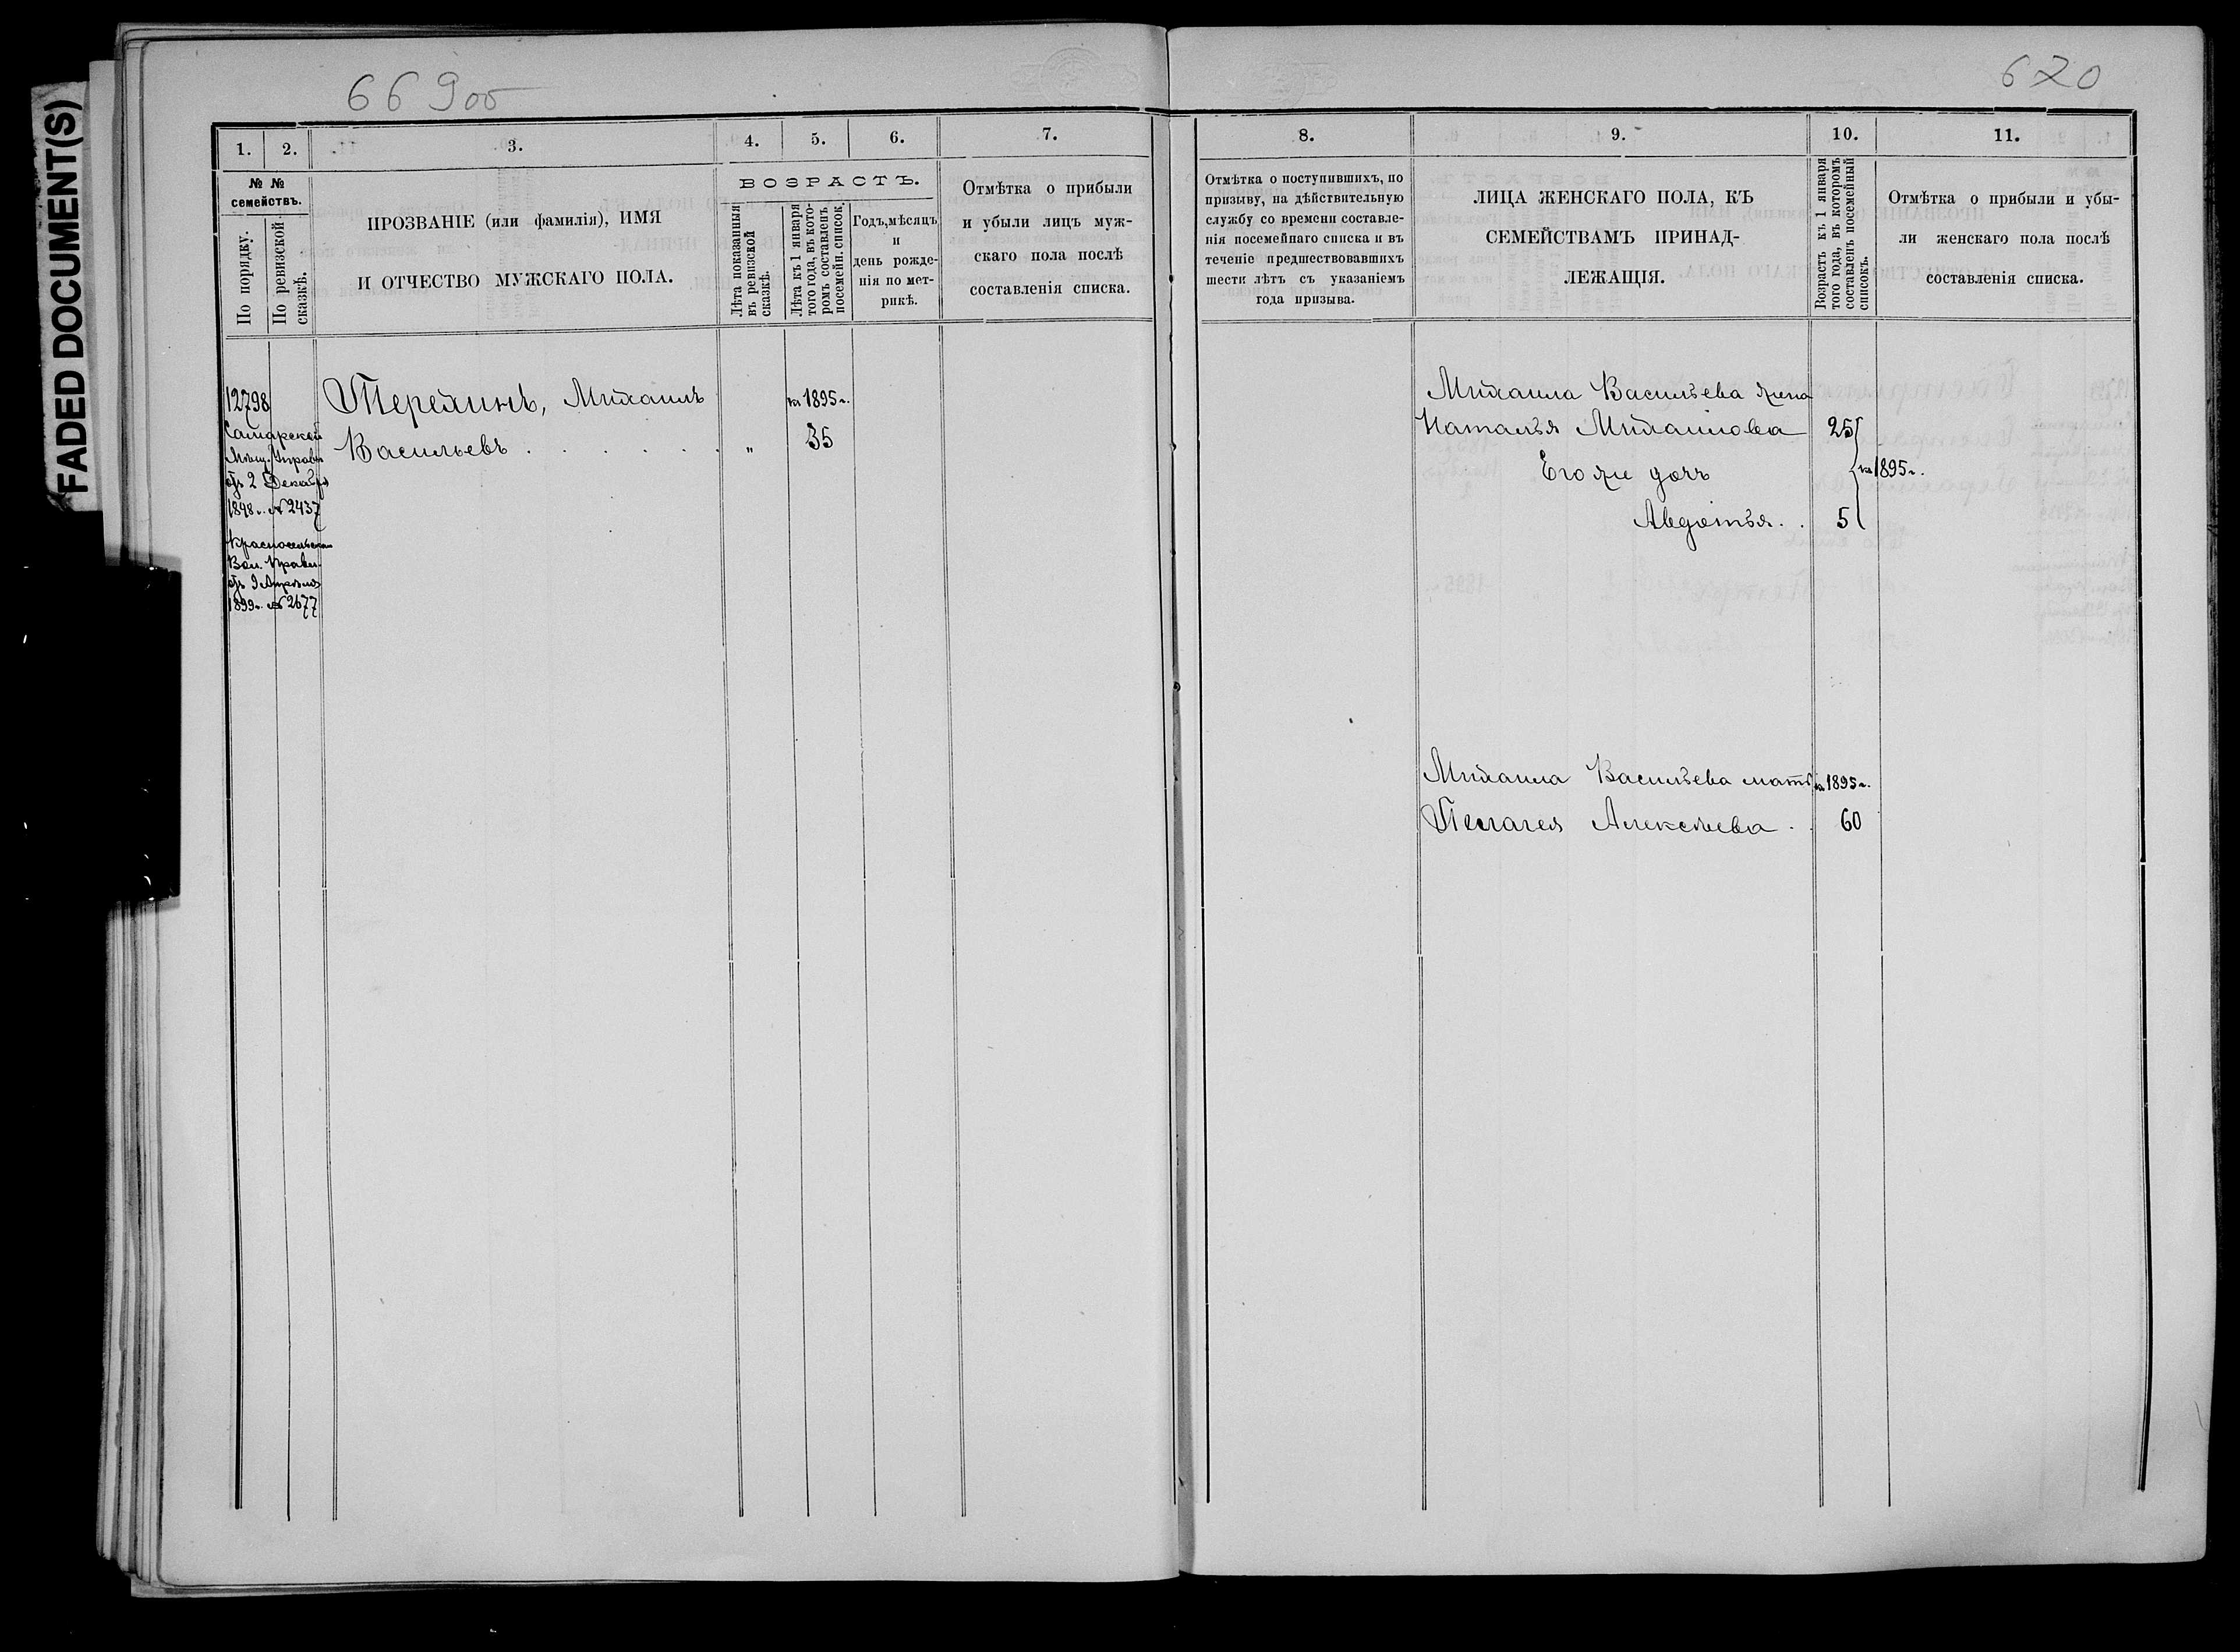 FADED DOCUMENT(S)
66 9об
670
1. 2. 3. 4. 5. 6. 7.
№ № семействъ.
По порядку.
По ревизской сказкѣ.
ПРОЗВАНІЕ (или фамилія), ИМЯ
И ОТЧЕСТВО МУЖСКАГО ПОЛА.
ВОЗРАСТЪ.
Лѣта показанныя въ ревизской сказкѣ.
Лѣта къ 1 января того года, въ кото-ромъ составленъ посемейн. список.
Годъ, мѣсяцъ
и
день рожде-
нія по мет-
рикѣ.
Отмѣтка о прибыли
и убыли лицъ муж-
скаго пола послѣ
составленія списка.
8. 9. 10. 11.
Отмѣтка о поступившихъ, по
призыву, на дѣйствительную
службу со времени составле-
нія посемейнаго списка и въ
теченіе предшествовавшихъ
шести лѣтъ съ указаніемъ
года призыва.
ЛИЦА ЖЕНСКАГО ПОЛА, КЪ
СЕМЕЙСТВАМЪ ПРИНАД-
ЛЕЖАЩІЯ.
Возрастъ къ 1 января того года, въ которомъ составленъ посемейный списокъ.
Отмѣтка о прибыли и убы-
ли женскаго пола послѣ
составленія списка.
12798
Самарской
Мѣщ. Управы
отъ 2 Декабря
1898 г. № 2437
Красносельскаго
Вол. Правл.
отъ 9 Апрѣля
1899 г. № 2677
Терехинъ, Михаилъ на 1895 г.
Васильевъ . . . . . . „ 35
Михаила Васильева жена
Наталья Михаилова 25
Его же дочь на 1895 г.
Авдотья . . 5
Михаила Васильева мать на 1895 г.
Пелагея Алексѣева . . 60